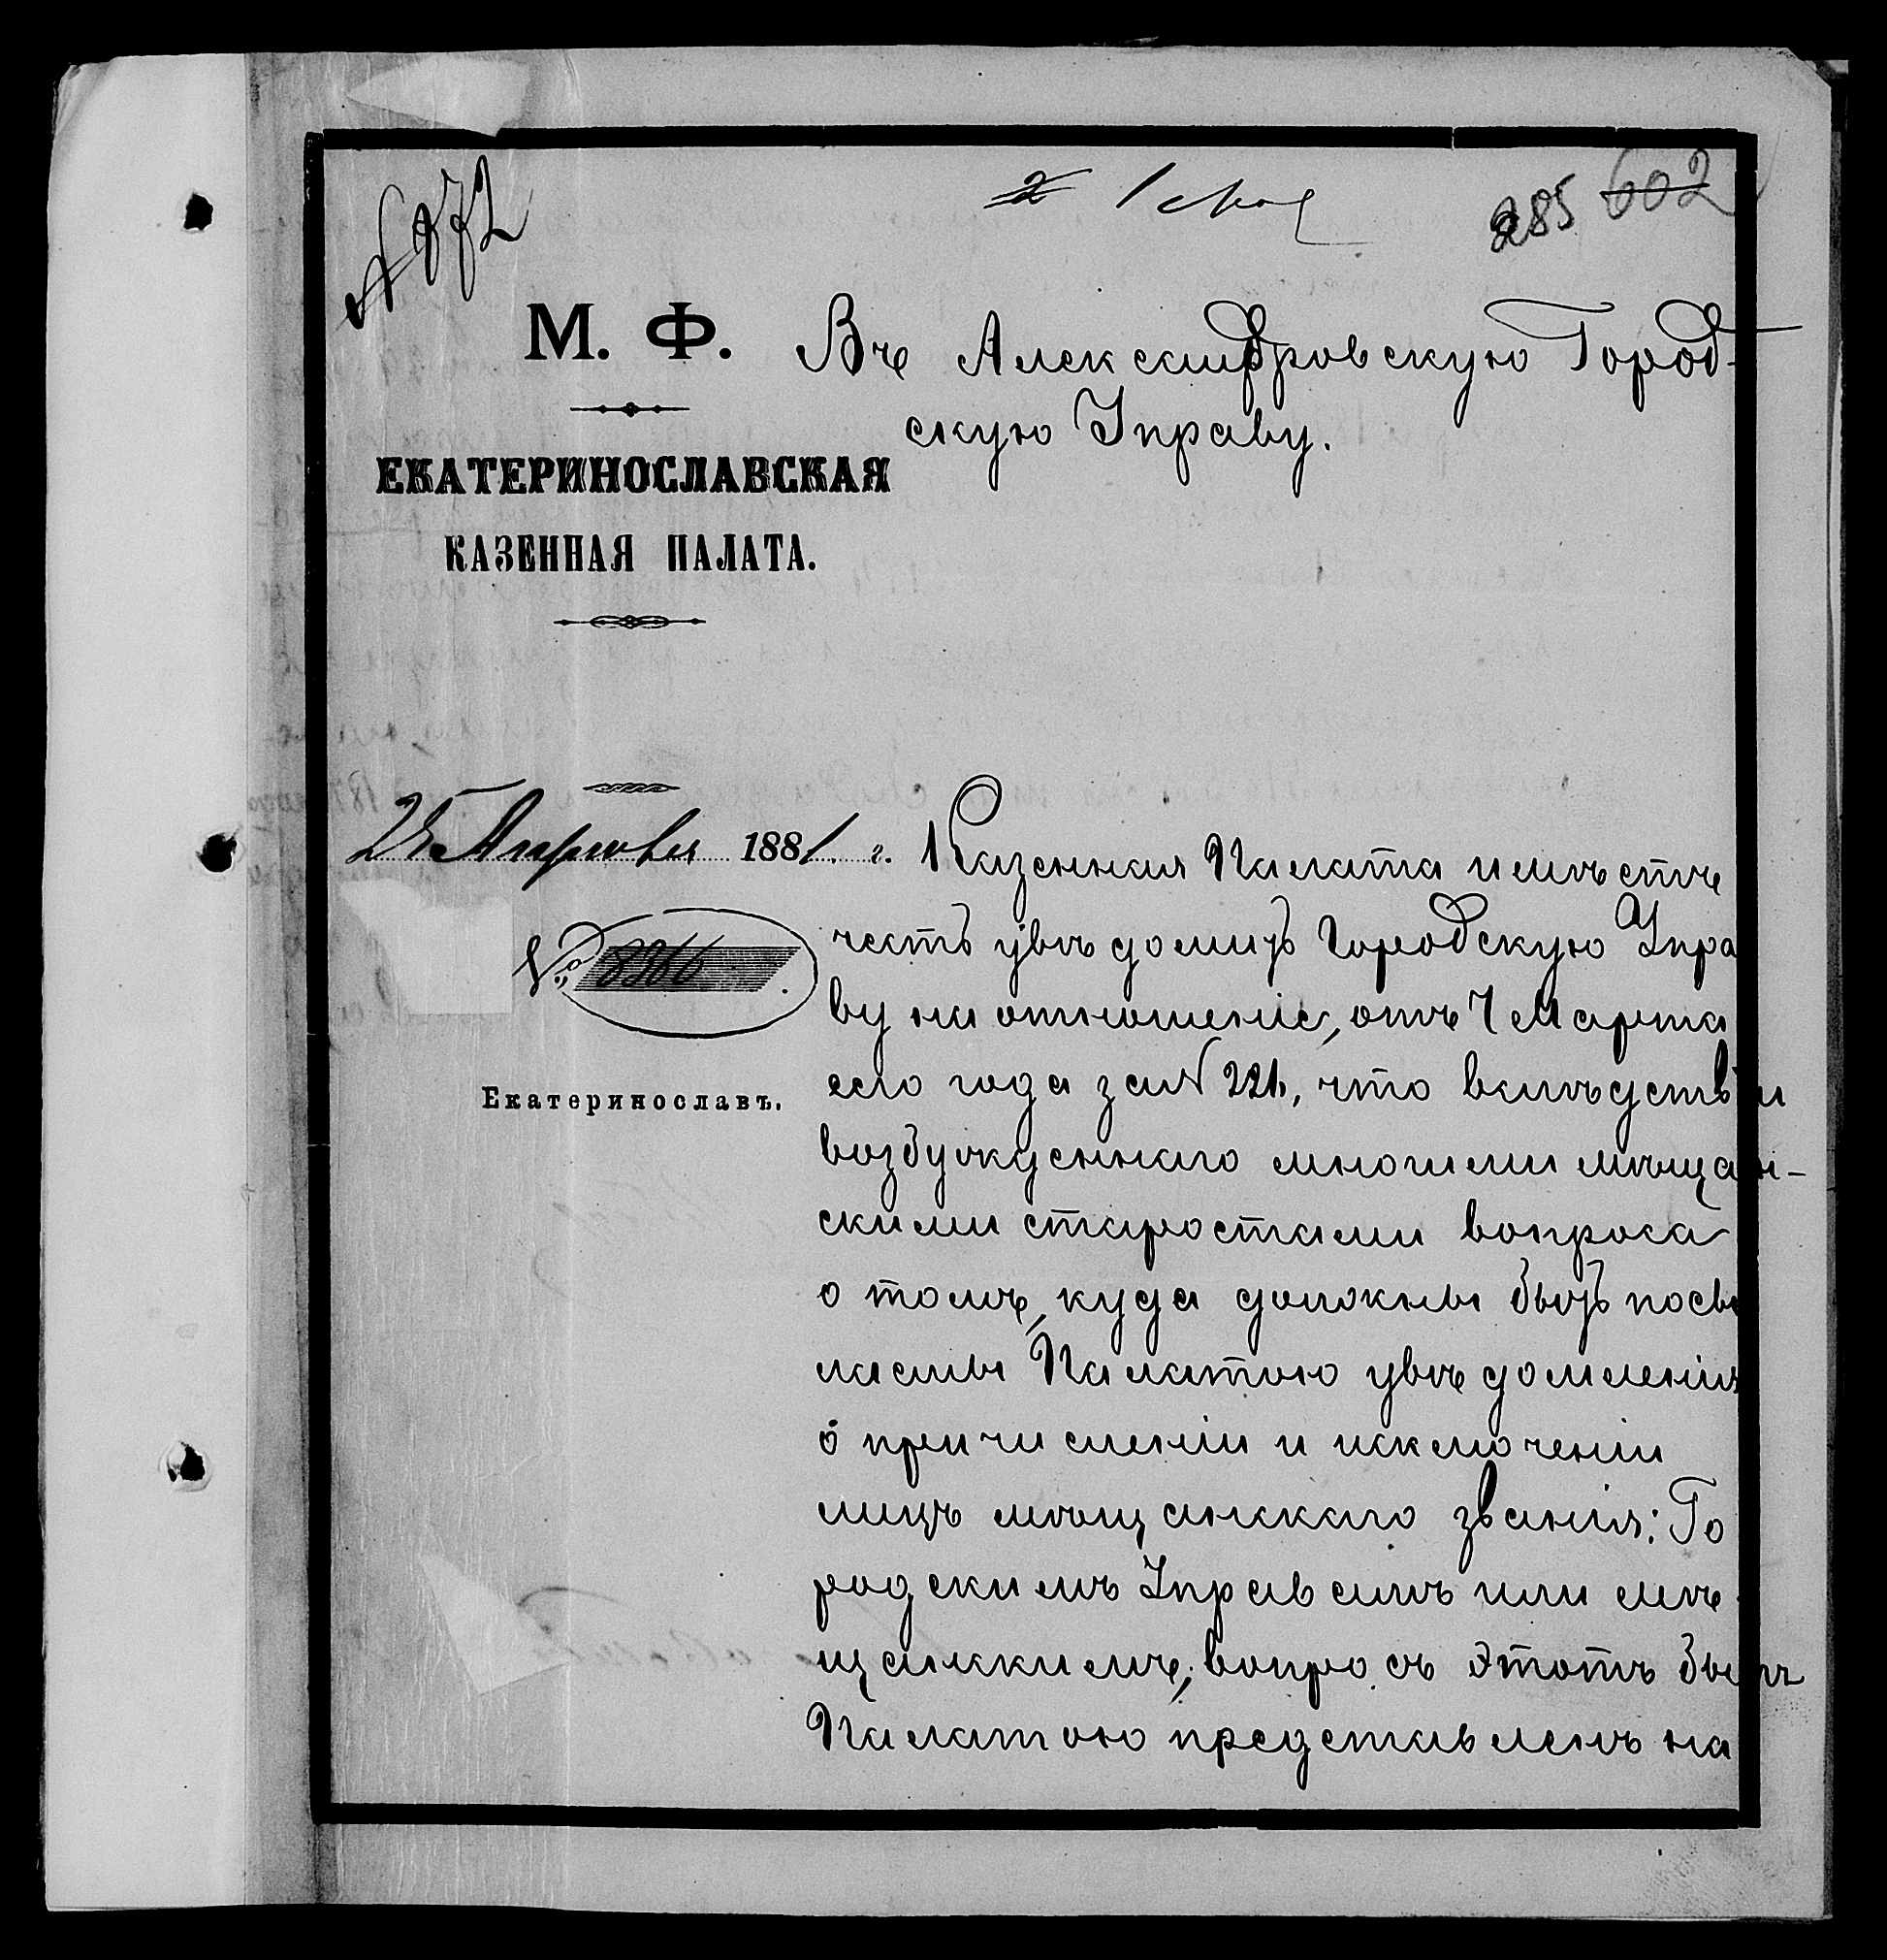 № 372
2 1 стол
285 602
М. Ф.
Въ Александровскую Город-
скую Управу.
ЕКАТЕРИНОСЛАВСКАЯ
КАЗЕННАЯ ПАЛАТА.
Апреля 1881 г.
№ 8366.
Екатеринославъ.
Казенная Палата имѣетъ
честь увѣдомить Городскую Упра
ву на отношеніе, отъ 7 Марта
сего года за №, что вслѣдствіи
возбужденнаго многими мѣщан-
скими старостами вопроса
о томъ, куда должны быть посы
лаемы Палатою увѣдомленія
о причисленіи и исключеніи
лицъ мѣщанскаго званія: Го
родскимъ Управамъ или мѣ
щанскимъ, вопросъ этотъ былъ
Палатою представленъ на